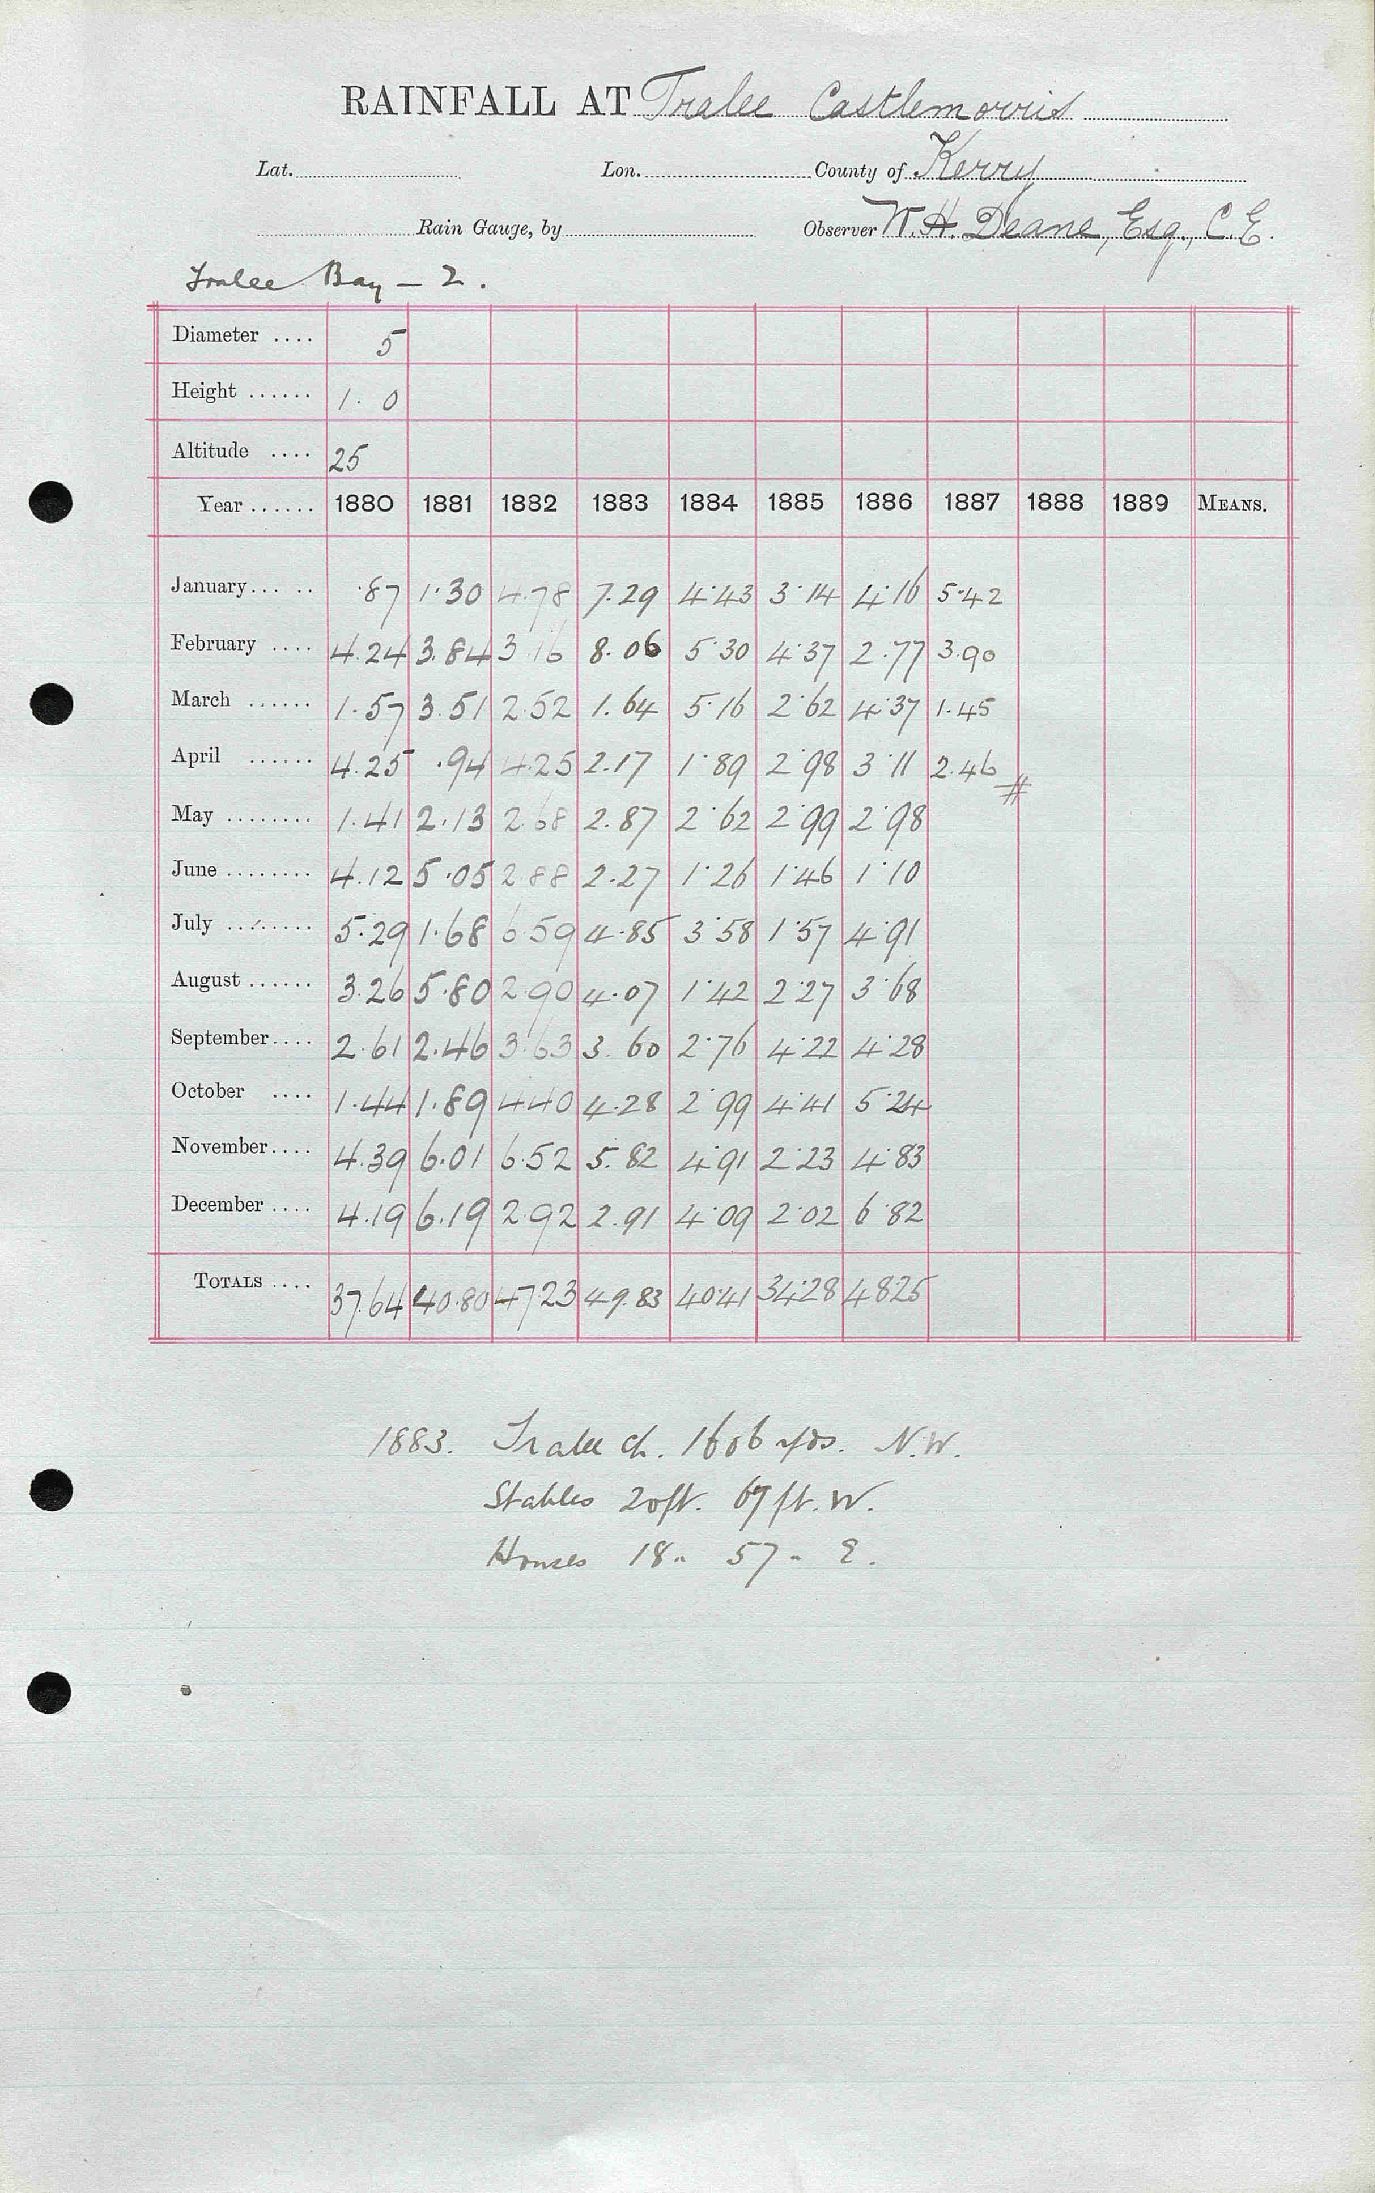 RAINFALL AT Tralee Castlemorris
Lat. Lon. County of Kerry
Rain Gauge, by Observer W. H. Deane, Esq., C.E.
Tralee Bay – 2.
Diameter .... 5
Height ...... 1. 0
Altitude .... 25
Year ...... 1880 1881 1882 1883 1884 1885 1886 1887 1888 1889 MEANS.
January... .. .87 1.30 4.78 7.29 4.43 3.14 4.16 5.42
February .... 4.24 3.84 3.16 8.06 5.30 4.37 2.77 3.90
March ...... 1.57 3.51 2.52 1.64 5.16 2.62 4.37 1.45
April ...... 4.25 .94 4.25 2.17 1.89 2.98 3.11 2.46 #
May ........ 1.41 2.13 2.68 2.87 2.62 2.99 2.98
June ........ 4.12 5.05 2.88 2.27 1.26 1.46 1.10
July ........ 5.29 1.68 6.59 4.85 3.58 1.57 4.91
August ...... 3.26 5.80 2.90 4.07 1.42 2.27 3.68
September.... 2.61 2.46 3.63 3.60 2.76 4.22 4.28
October .... 1.44 1.89 4.40 4.28 2.99 4.41 5.24
November.... 4.39 6.01 6.52 5.82 4.91 2.23 4.83
December .... 4.19 6.19 2.92 2.91 4.09 2.02 6.82
TOTALS .... 37.64 40.80 47.23 49.83 40.41 34.28 48.25
1883. Tralee ch. 1606 yds. N.W.
Stables 20ft. 67 ft. W.
Houses 18 „ 57 „ E.